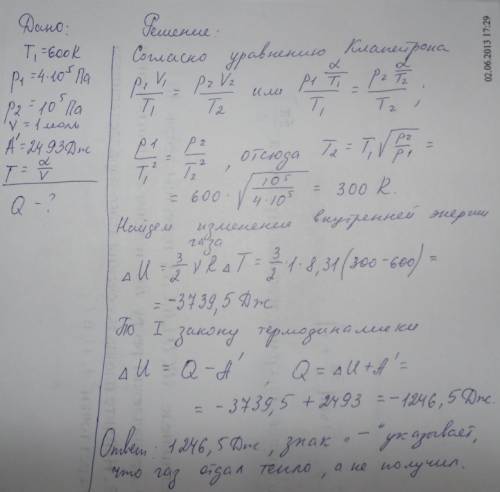 Дано:
T₁ = 600K
p₁ = 4·10⁵ Па
p₂ = 10⁵ Па
ν = 1 моль
A' = 2493 Дж
T = α/V
Q - ?
Решение:
Согласно уравнению Клапейрона
p₁ V₁/T₁ = p₂ V₂/T₂ или p₁ α/T₁/T₁ = p₂ α/T₂/T₂ ;
p₁/T₁² = p₂/T₂² , отсюда T₂ = T₁ √p₂/p₁ =
= 600 · √10⁵/4·10⁵ = 300 K.
Найдем изменение внутренней энергии
газа
ΔU = 3/2 νRΔT = 3/2 · 1 · 8,31 (300 - 600) =
= -3739,5 Дж
По I закону термодинамики
ΔU = Q - A' , Q = ΔU + A' =
= -3739,5 + 2493 = -1246,5 Дж.
Ответ: 1246,5 Дж, знак „-" указывает,
что газ отдал тепло, а не получил.
02.06.2013 17:29